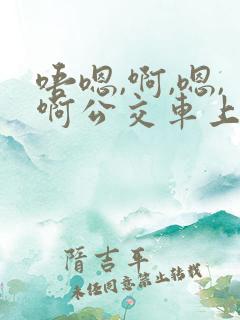 唔嗯,啊,嗯,
啊公交车上
隋吉平
未经同意禁止转载